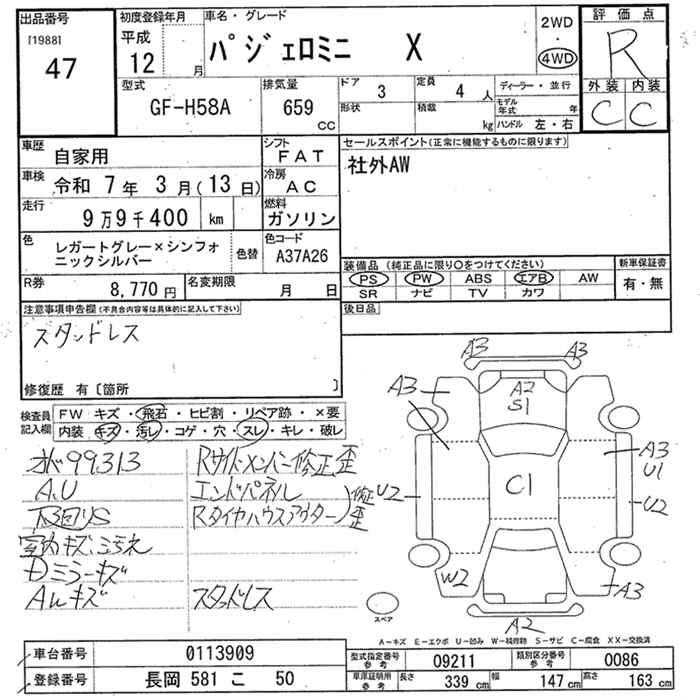 出品番号
[1988]
47
初度登録年月
平成
12 月
車名・グレード
パジェロミニ X
2WD
・
4WD
評価点
R
外装 内装
C C
型式
GF-H58A
排気量
659
cc
ドア
3
定員
4 人
形状
積載
kg
ディーラー・並行
モデル年式 年
ハンドル 左・右
車歴
自家用
シフト
FAT
車検
令和 7年 3月(13日)
冷房
AC
走行
9万9千400 km
燃料
ガソリン
色
レガートグレー×シンフォ
ニックシルバー
色替
色コード
A37A26
R券
8,770円
名変期限
月 日
セールスポイント(正常に機能するものに限ります)
社外AW
装備品(純正品に限り○をつけてください)
PS PW ABS エアB AW
SR ナビ TV カワ
新車保証書
有・無
後日品
注意事項申告欄(不具合内容等は具体的に記入して下さい)
スタッドレス
修復歴 有〔箇所 〕
検査員
記入欄
FW キズ・飛石・ヒビ割・リペア跡・×要
内装 キズ・汚レ・コゲ・穴・スレ・キレ・破レ
99,313
A,U
下回りS
室内キズ、汚れ
Dミラーキズ
AWキズ
Rサイドメンバー修正歪
エンドパネル
Rタイヤハウスアウター
修正歪
スタッドレス
A3 A3
A3
A2
S1
C1
A3
U1
U2
U2
W2
A3
A2
スペア
A-キズ E-エクボ U-凹み W-補修跡 S-サビ C-腐食 XX-交換済
車台番号
0113909
登録番号
長岡 581 こ 50
型式指定番号
参考
09211
類別区分番号
参考
0086
車庫証明所
参考
長さ
339 cm
幅
147 cm
高さ
163 cm